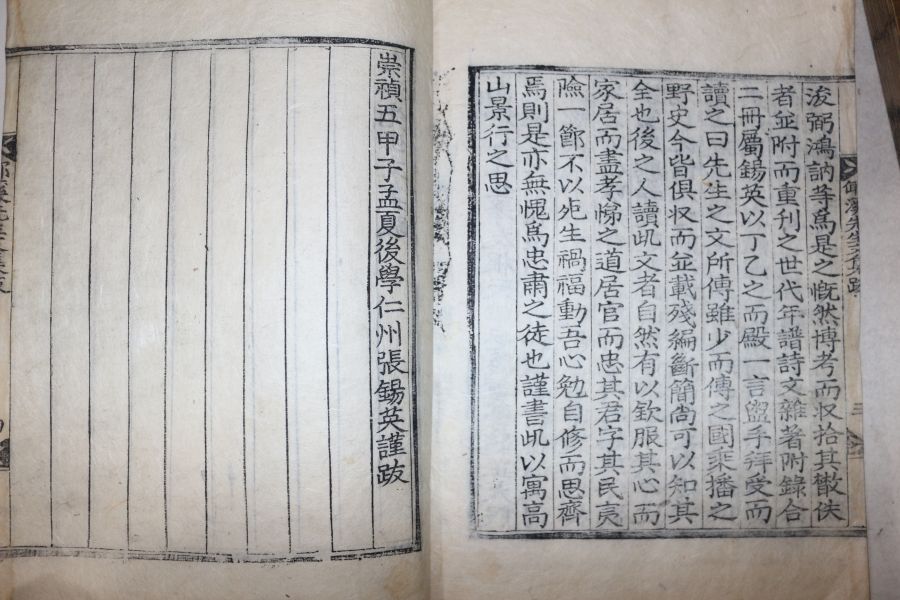 浚弼鴻訥等爲是之慨然博考而収拾其散佚
者並附而重刋之世代年譜詩文雜著附錄合
二冊屬錫英以丁乙之而殿一言盥手拜受而
讀之曰先生之文所傳雖少而傳之國乘播之
野史今皆俱収而並載殘編斷簡尙可以知其
全也後之人讀此文者自然有以欽服其心而
家居而盡孝悌之道居官而忠其君字其民夷
險一節不以死生禍福動吾心勉自修而思齊
焉則是亦無愧爲忠肅之徒也謹書此以寓高
山景行之思
崇禎五甲子孟夏後學仁州張錫英謹跋